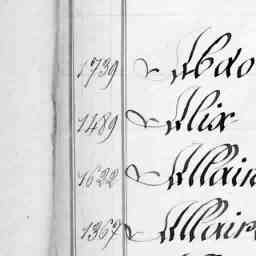 1739 Abdo
1489 Alix
1622 Allain
1367 Allair